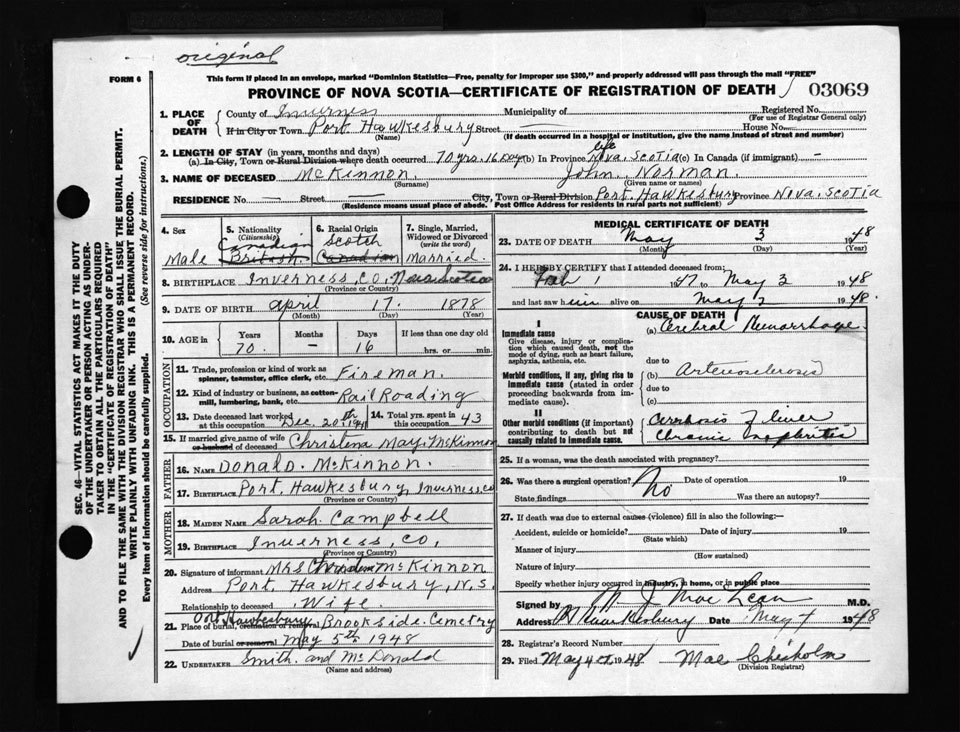 original
FORM 6
This form if placed in an envelope, marked "Dominion Statistics—Free, penalty for improper use $300," and properly addressed will pass through the mail "FREE"
PROVINCE OF NOVA SCOTIA—CERTIFICATE OF REGISTRATION OF DEATH 03069
1. PLACE OF DEATH County of Inverness Municipality of Registered No.
(For use of Registrar General only)
If in City or Town Port Hawkesbury Street — House No.
(Name) (If death occurred in a hospital or institution, give the name instead of street and number)
2. LENGTH OF STAY (in years, months and days)
(a) In City, Town or Rural Division where death occurred 70 yrs. 16 days (b) In Province life Nova Scotia (c) In Canada (if immigrant) —
3. NAME OF DECEASED McKinnon. John Norman.
(Surname) (Given name or names)
RESIDENCE No. — Street — City, Town or Rural Division Port Hawkesbury Province Nova Scotia
(Residence means usual place of abode. Post Office Address for residents in rural parts not sufficient)
4. Sex 5. Nationality (Citizenship) 6. Racial Origin 7. Single, Married, Widowed or Divorced (write the word)
Canadian Scotch
Male British Canadian Married.
8. BIRTHPLACE Inverness, Co, Nova Scotia
(Province or Country)
9. DATE OF BIRTH April 17. 1878
(Month) (Day) (Year)
10. AGE in Years Months Days If less than one day old
70. — 16 hrs. or min.
OCCUPATION
11. Trade, profession or kind of work as spinner, teamster, office clerk, etc. Fireman.
12. Kind of industry or business, as cotton-mill, lumbering, bank, etc. Rail Roading
13. Date deceased last worked at this occupation Dec. 20th 1941 14. Total yrs. spent in this occupation 43
15. If married give name of wife or husband of deceased Christena May. McKinnon
FATHER
16. NAME Donald. McKinnon.
17. BIRTHPLACE Port. Hawkesbury, Inverness, co
(Province or Country)
MOTHER
18. MAIDEN NAME Sarah. Campbell
19. BIRTHPLACE Inverness, Co,
(Province or Country)
20. Signature of informant Mrs Christena McKinnon
Address Port, Hawkesbury, N.S.
Relationship to deceased Wife.
21. Place of burial, cremation or removal Port Hawkesbury Brookside. Cemetry
Date of burial or removal May 5th 1948
22. UNDERTAKER Smith. and McDonald
(Name and address)
MEDICAL CERTIFICATE OF DEATH
23. DATE OF DEATH May 3 1948
(Month) (Day) (Year)
24. I HEREBY CERTIFY that I attended deceased from:
Feb 1 1947 to May 3 1948
and last saw him alive on May 2 1948.
CAUSE OF DEATH
I
Immediate cause (a) Cerebral Hemorrhage
Give disease, injury or complication which caused death, not the mode of dying, such as heart failure, asphyxia, asthenia, etc.
due to
Morbid conditions, if any, giving rise to immediate cause (stated in order proceeding backwards from immediate cause). (b) Arteriosclerosis
due to
(c)
II
Other morbid conditions (if important) contributing to death but not causally related to immediate cause. Cirrhosis of liver
Chronic Nephritis
25. If a woman, was the death associated with pregnancy?
26. Was there a surgical operation? No Date of operation 19
State findings Was there an autopsy?
27. If death was due to external causes (violence) fill in also the following:—
Accident, suicide or homicide? Date of injury 19
(State which)
Manner of injury
(How sustained)
Nature of injury
Specify whether injury occurred in industry, in home, or in public place
Signed by J MacLean M.D.
Address Pt Hawkesbury Date May 4 1948
28. Registrar's Record Number
29. Filed May 4th 1948 Mae Chisholm
(Division Registrar)
SEC. 46—VITAL STATISTICS ACT MAKES IT THE DUTY
OF THE UNDERTAKER OR PERSON ACTING AS UNDER-
TAKER TO OBTAIN ALL THE PARTICULARS REQUIRED
IN THE "CERTIFICATE OF REGISTRATION OF DEATH"
AND TO FILE THE SAME WITH THE DIVISION REGISTRAR WHO SHALL ISSUE THE BURIAL PERMIT.
WRITE PLAINLY WITH UNFADING INK. THIS IS A PERMANENT RECORD.
Every item of information should be carefully supplied. (See reverse side for instructions.)